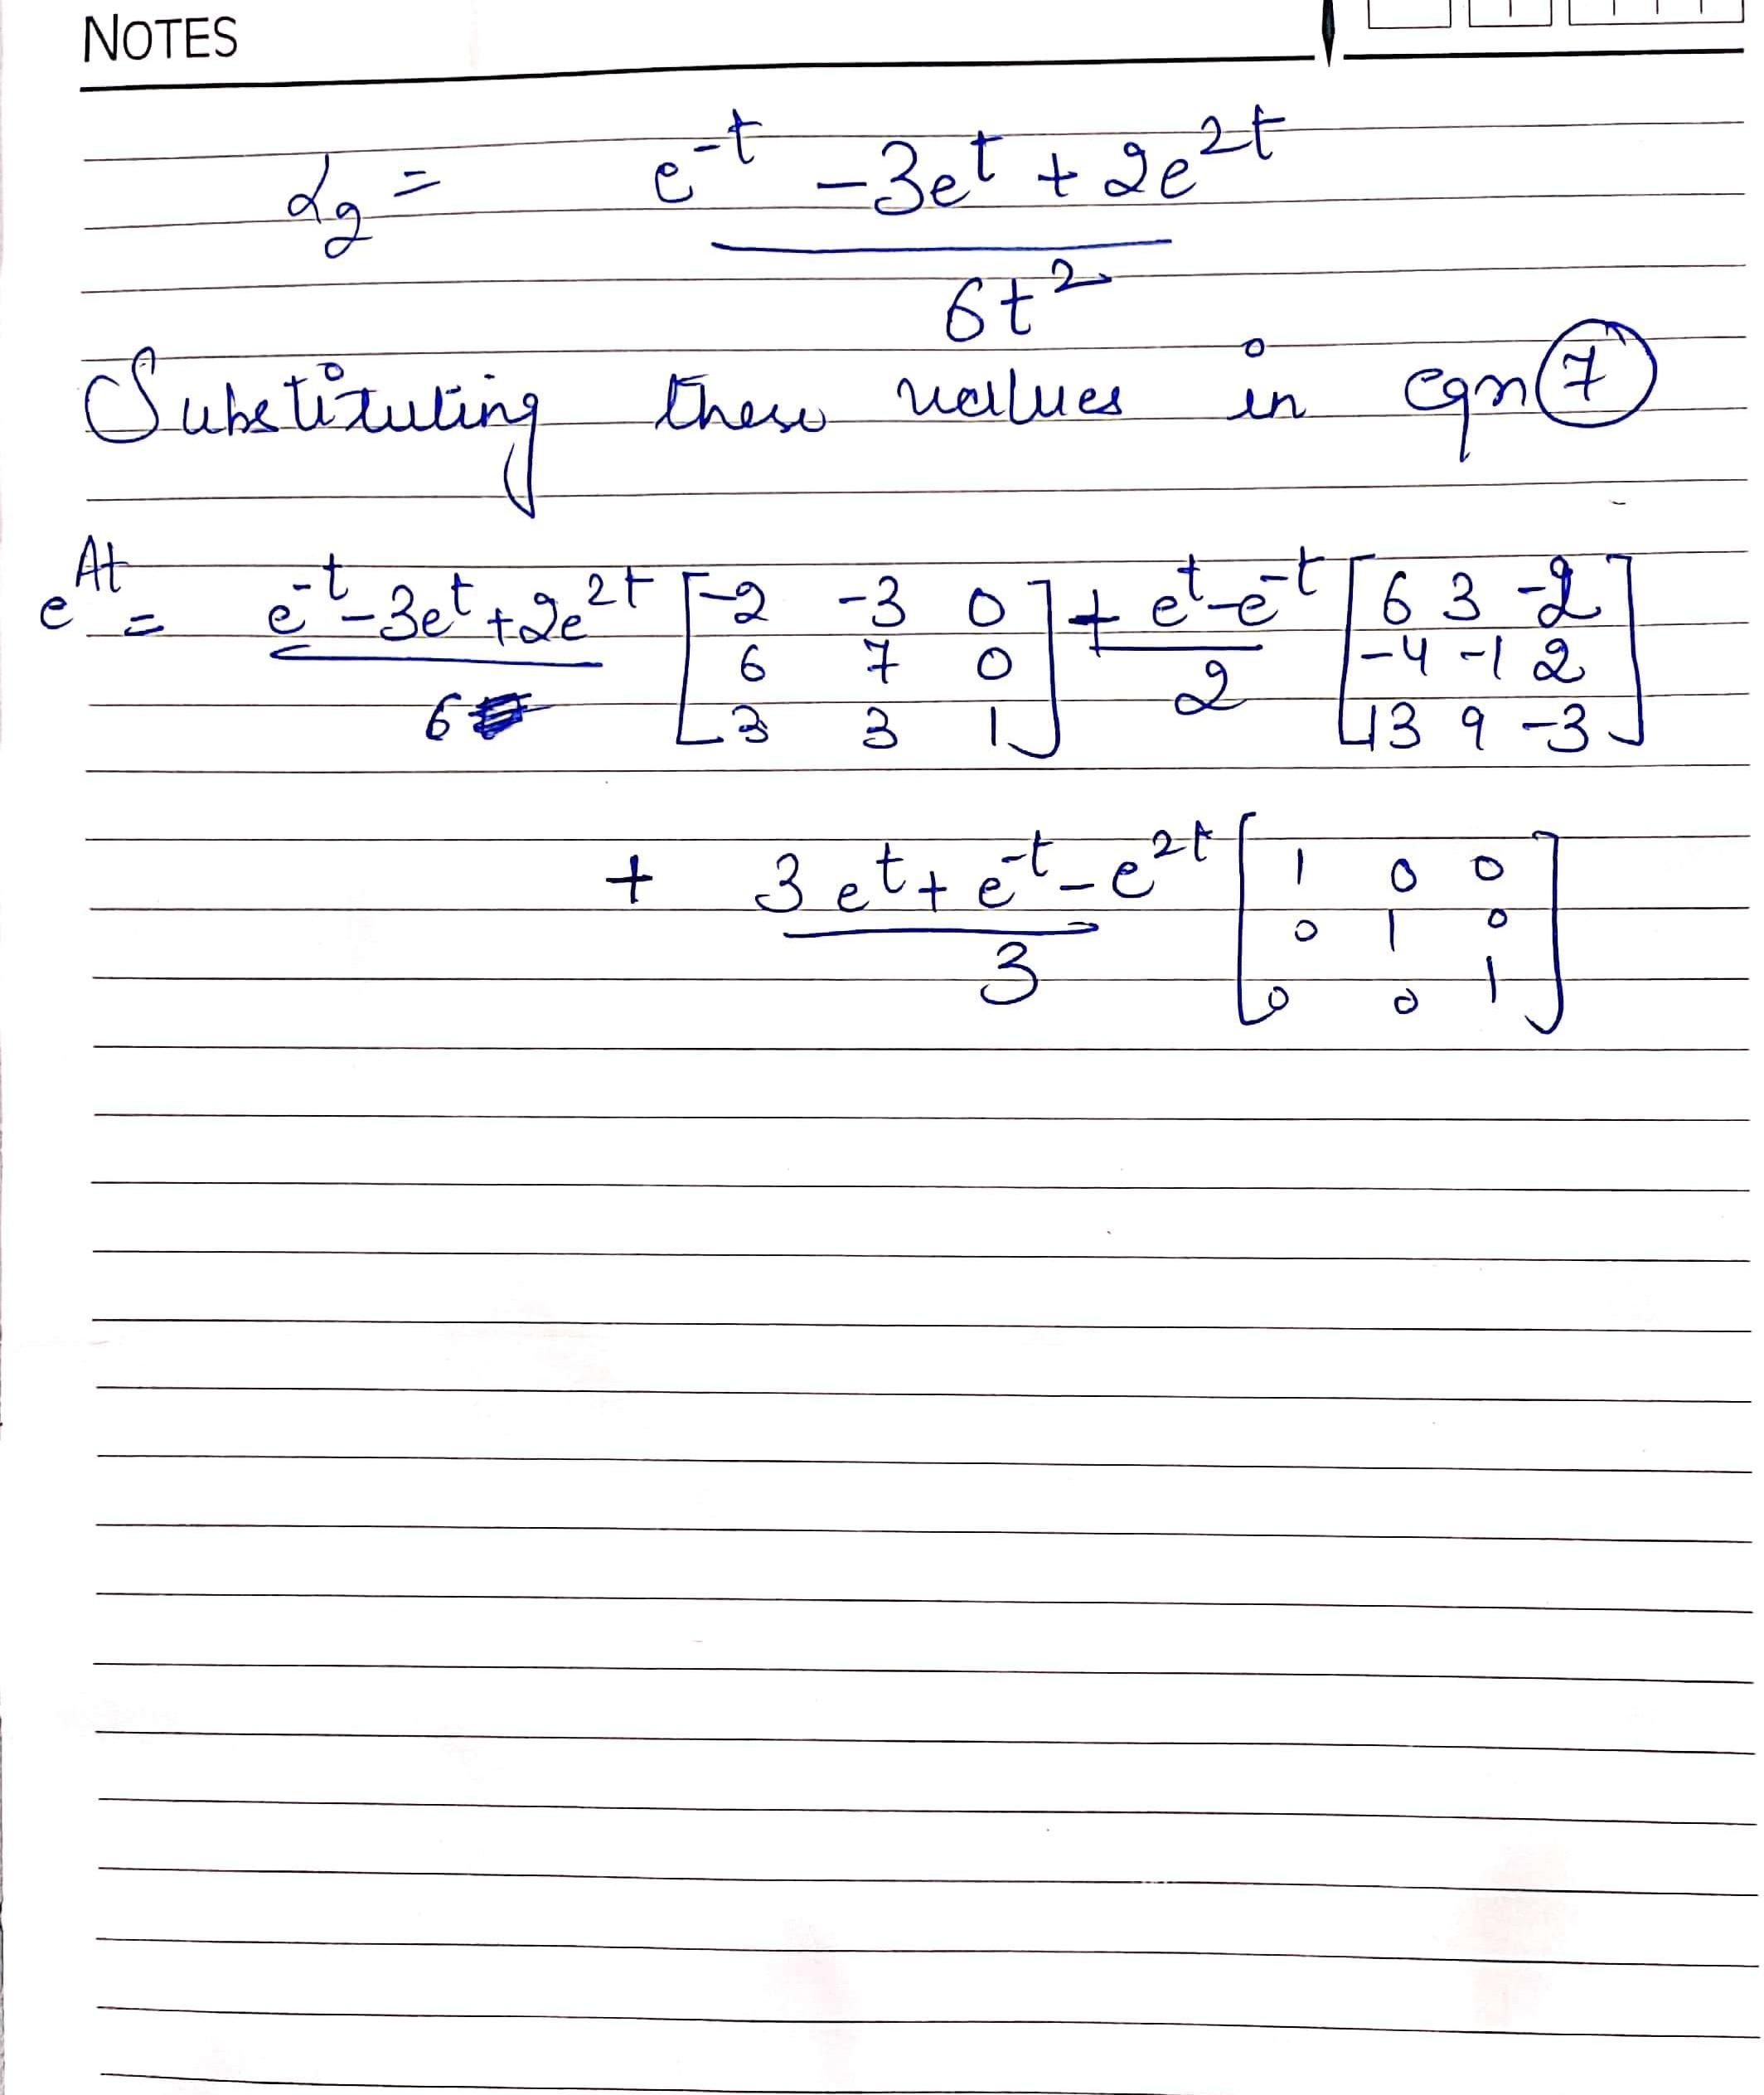 NOTES
α₂ = (e^-t - 3e^t + 2e^2t) / 6t^2
Substituting these values in eqn (7)
e^At = (e^-t - 3e^t + 2e^2t) / 6 [-2 -3 0; 6 7 0; 3 3 1] + (e^t - e^-t) / 2 [6 3 -2; -4 -1 2; 13 9 -3]
+ (3e^t + e^-t - e^2t) / 3 [1 0 0; 0 1 0; 0 0 1]